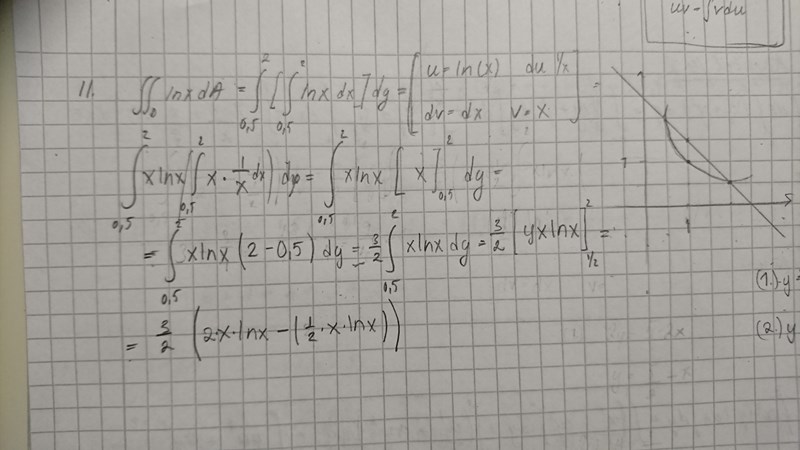 uv - ∫vdu
11. ∬_D lnx dA = ∫_{0,5}^{2} [∫_{0,5}^{2} lnx dx] dy = [u = ln(x) du 1/x
dv = dx v = x] =
∫_{0,5}^{2} x lnx (∫_{0,5}^{2} x · 1/x dx) dy = ∫_{0,5}^{2} x lnx [x]_{0,5}^{2} dy =
= ∫_{0,5}^{2} x lnx (2 - 0,5) dy = 3/2 ∫_{0,5}^{2} x lnx dy = 3/2 [yx lnx]_{1/2}^{2} =
= 3/2 (2x · lnx - (1/2 · x · lnx))
1
1
(1.) y =
(2.) y